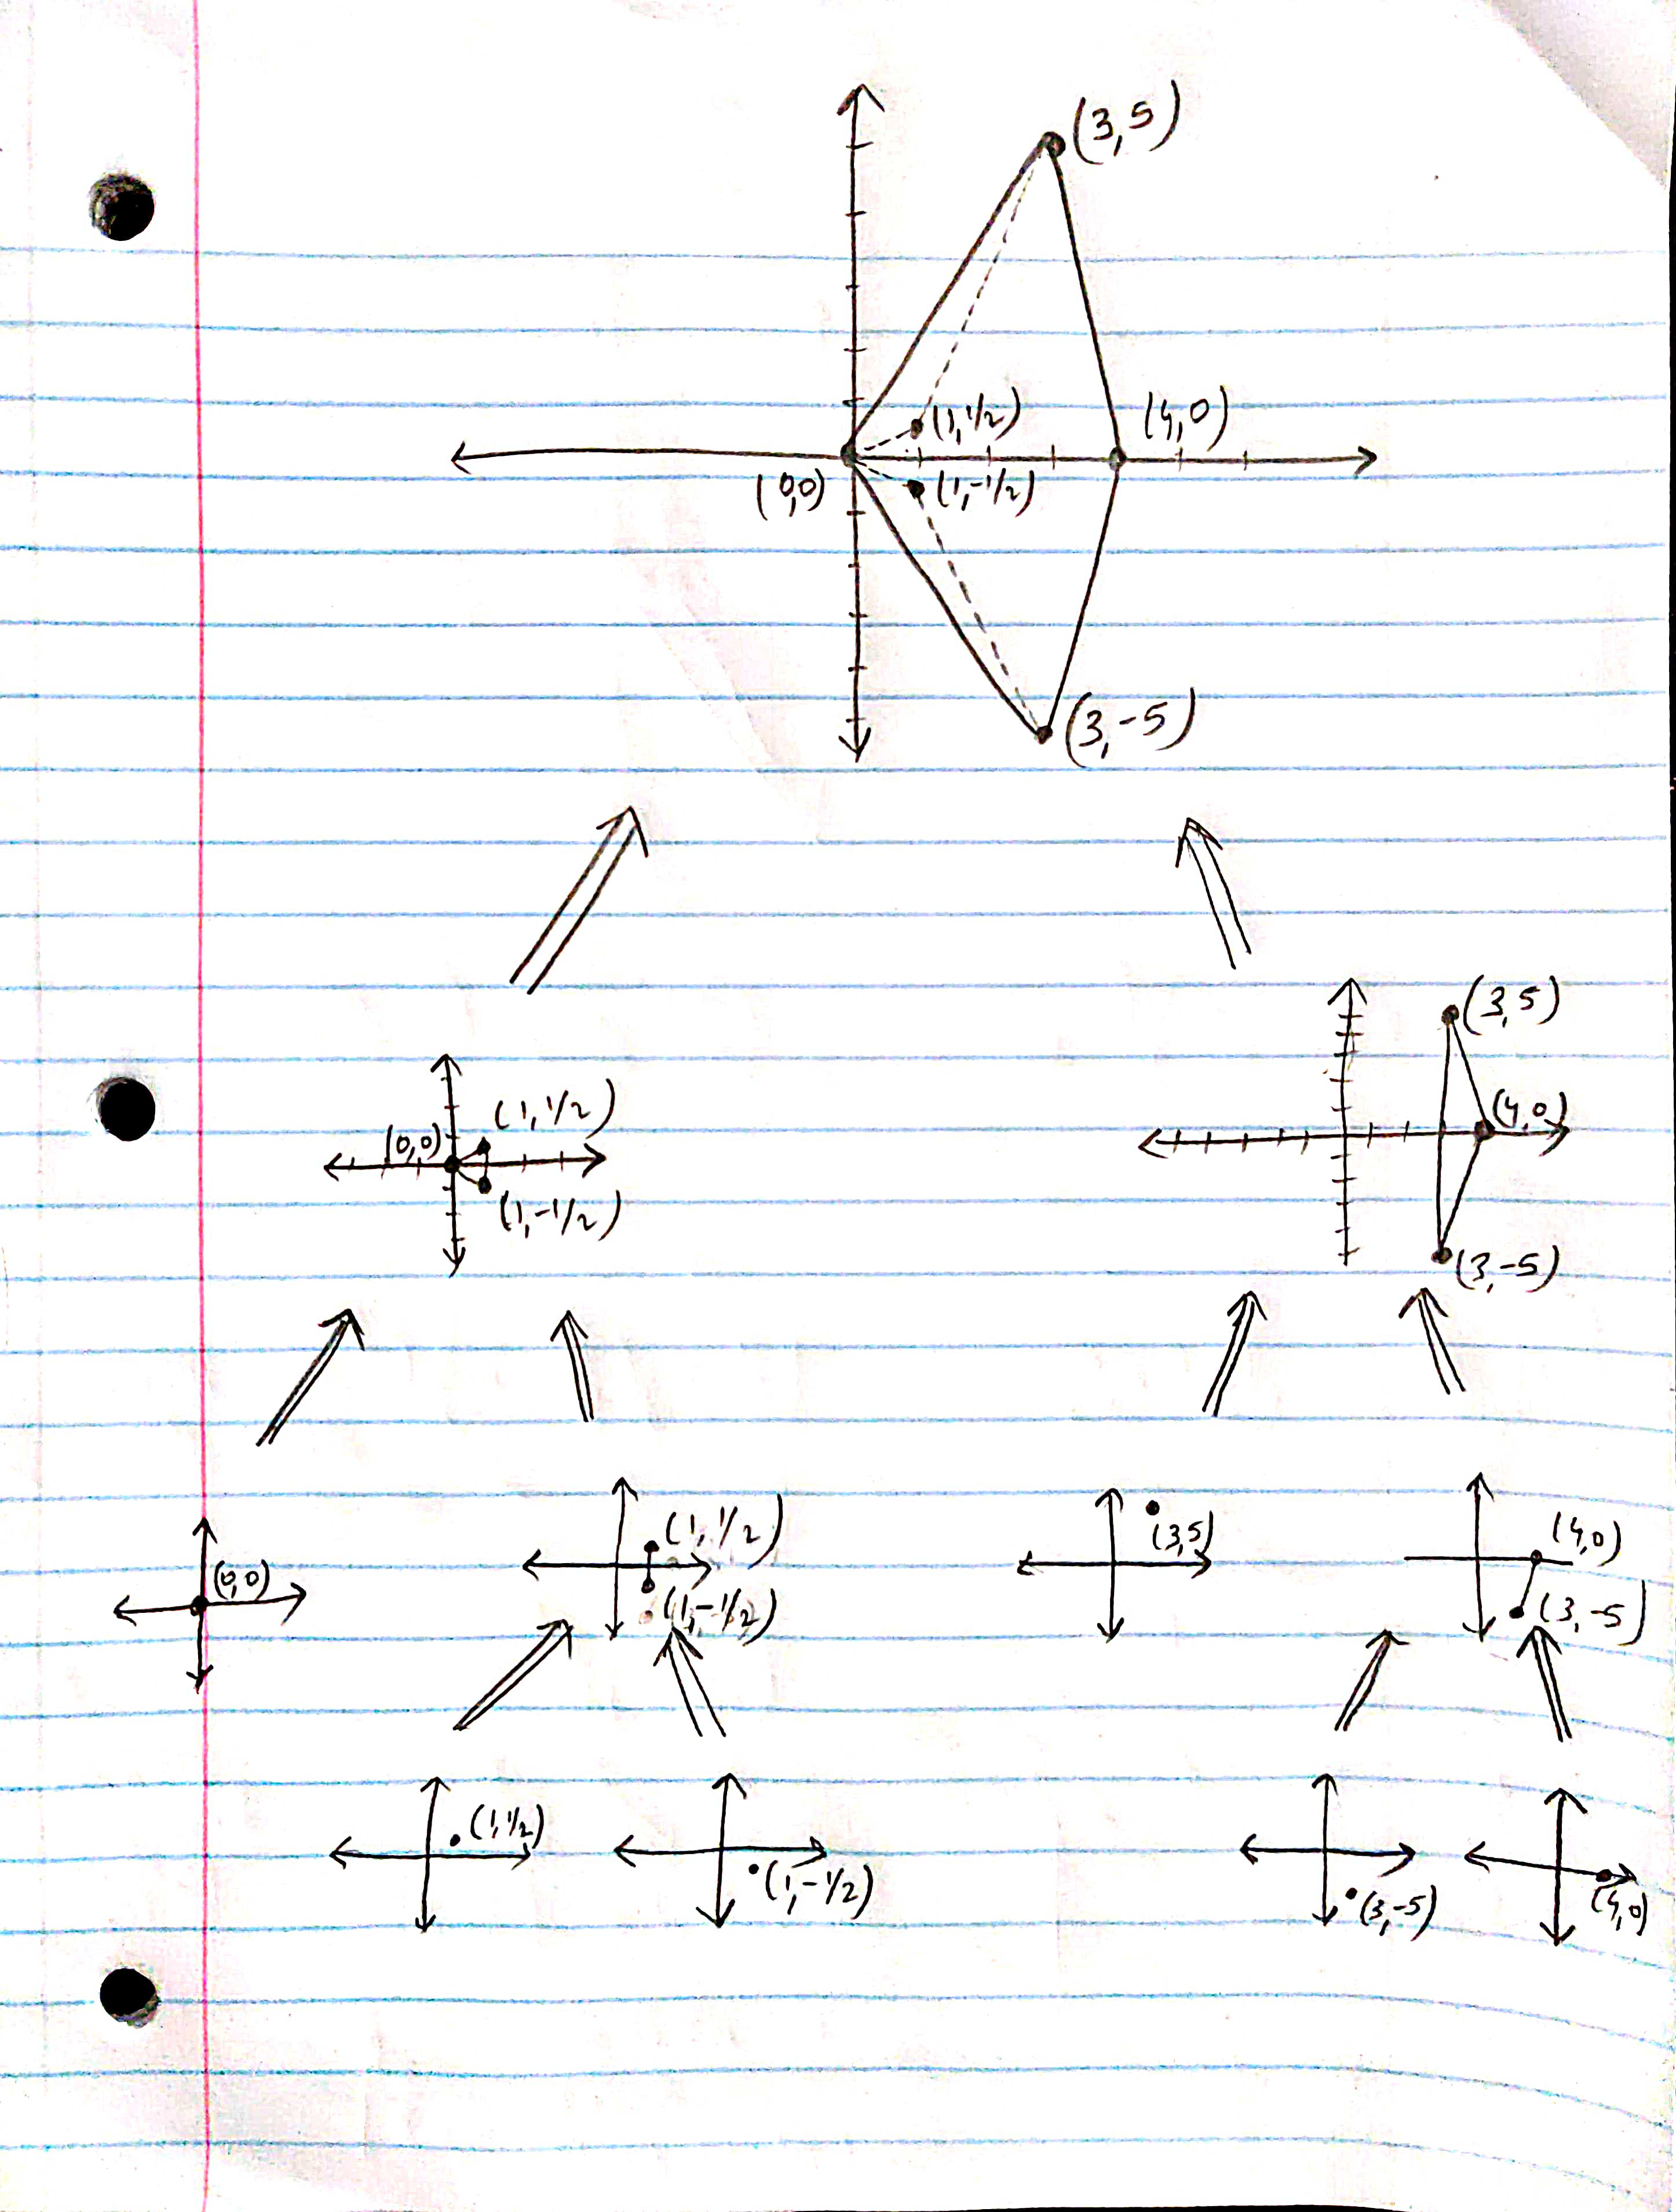 (3,5)
(1,1/2)
(4,0)
(0,0)
(1,-1/2)
(3,-5)
(3,5)
(1,1/2)
(0,0)
(4,0)
(1,-1/2)
(3,-5)
(1,1/2)
(3,5)
(4,0)
(0,0)
(1,-1/2)
(3,-5)
(1,1/2)
(1,-1/2)
(3,-5)
(4,0)